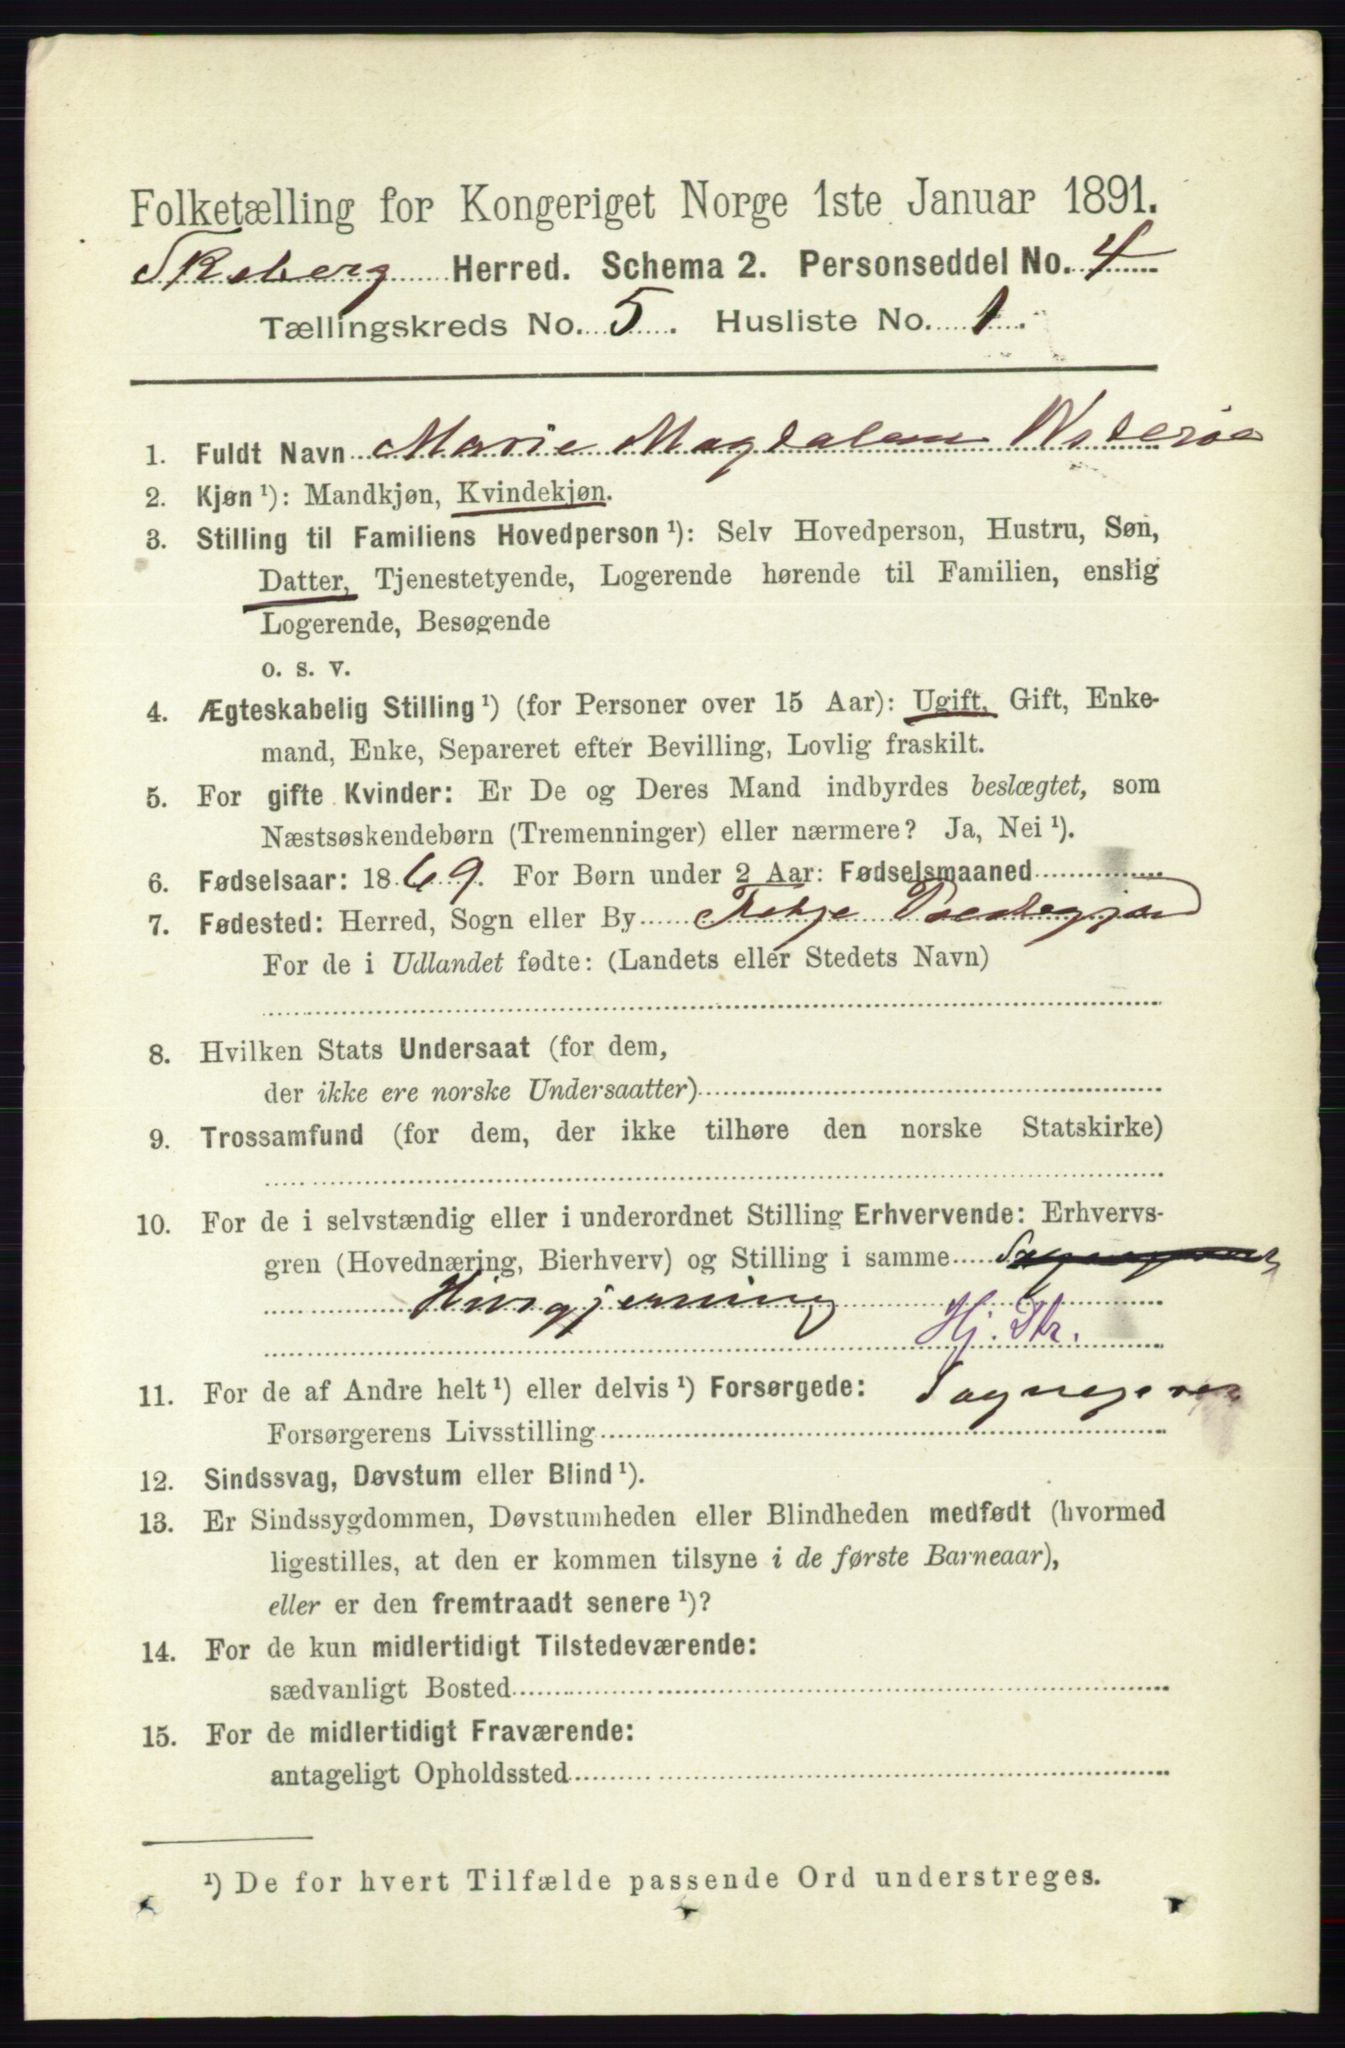 Folketælling for Kongeriget Norge 1ste Januar 1891.
Skeberg Herred. Schema 2. Personseddel No. 4
Tællingskreds No. 5. Husliste No. 1.
1. Fuldt Navn Marie Magdalene Widerøe
2. Kjøn ¹): Mandkjøn, Kvindekjøn.
3. Stilling til Familiens Hovedperson ¹): Selv Hovedperson, Hustru, Søn,
Datter, Tjenestetyende, Logerende hørende til Familien, enslig
Logerende, Besøgende
o. s. v.
4. Ægteskabelig Stilling ¹) (for Personer over 15 Aar): Ugift, Gift, Enke-
mand, Enke, Separeret efter Bevilling, Lovlig fraskilt.
5. For gifte Kvinder: Er De og Deres Mand indbyrdes beslægtet, som
Næstsøskendebørn (Tremenninger) eller nærmere? Ja, Nei ¹).
6. Fødselsaar: 1869. For Børn under 2 Aar: Fødselsmaaned
7. Fødested: Herred, Sogn eller By Præstegjæld
For de i Udlandet fødte: (Landets eller Stedets Navn)
8. Hvilken Stats Undersaat (for dem,
der ikke ere norske Undersaatter)
9. Trossamfund (for dem, der ikke tilhøre den norske Statskirke)
10. For de i selvstændig eller i underordnet Stilling Erhvervende: Erhvervs-
gren (Hovednæring, Bierhverv) og Stilling i samme
Husgjerning
Hj. Str.
11. For de af Andre helt ¹) eller delvis ¹) Forsørgede: Sognepræst
Forsørgerens Livsstilling
12. Sindssvag, Døvstum eller Blind ¹).
13. Er Sindssygdommen, Døvstumheden eller Blindheden medfødt (hvormed
ligestilles, at den er kommen tilsyne i de første Barneaar),
eller er den fremtraadt senere ¹)?
14. For de kun midlertidigt Tilstedeværende:
sædvanligt Bosted
15. For de midlertidigt Fraværende:
antageligt Opholdssted
¹) De for hvert Tilfælde passende Ord understreges.